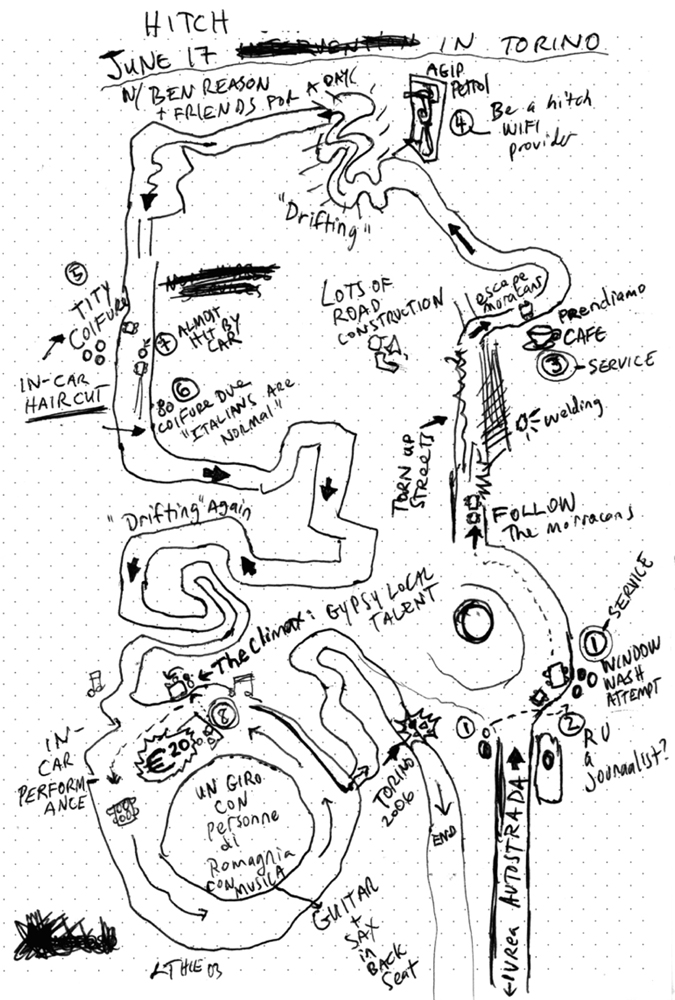 HITCH
JUNE 17 IN TORINO
W/ BEN REASON
+ FRIENDS FOR A DAY!
AGIP
Petrol
4
Be a hitch
WIFI
provider
"Drifting"
5
TITY
COIFURE
IN-CAR
HAIRCUT
7
ALMOST
HIT BY
CAR
6
COIFURE DUE
"ITALIANS ARE
NORMAL"
LOTS OF
ROAD
CONSTRUCTION
escape
moracans
Prendiamo
CAFE
3 - SERVICE
welding
TORN UP
STREETS
FOLLOW
The morracans
"Drifting" Again
The Climax: GYPSY LOCAL
TALENT
1 SERVICE
WINDOW
WASH
ATTEMPT
1
2
R U
a
Journalist?
8
€20
IN-
CAR
PERFORM-
ANCE
UN GIRO
CON
personne
di
Romagnia
CON MUSICA
TORINO
2006
END
GUITAR
+
SAX
in
BACK
Seat
IVRea AUTOSTRADA